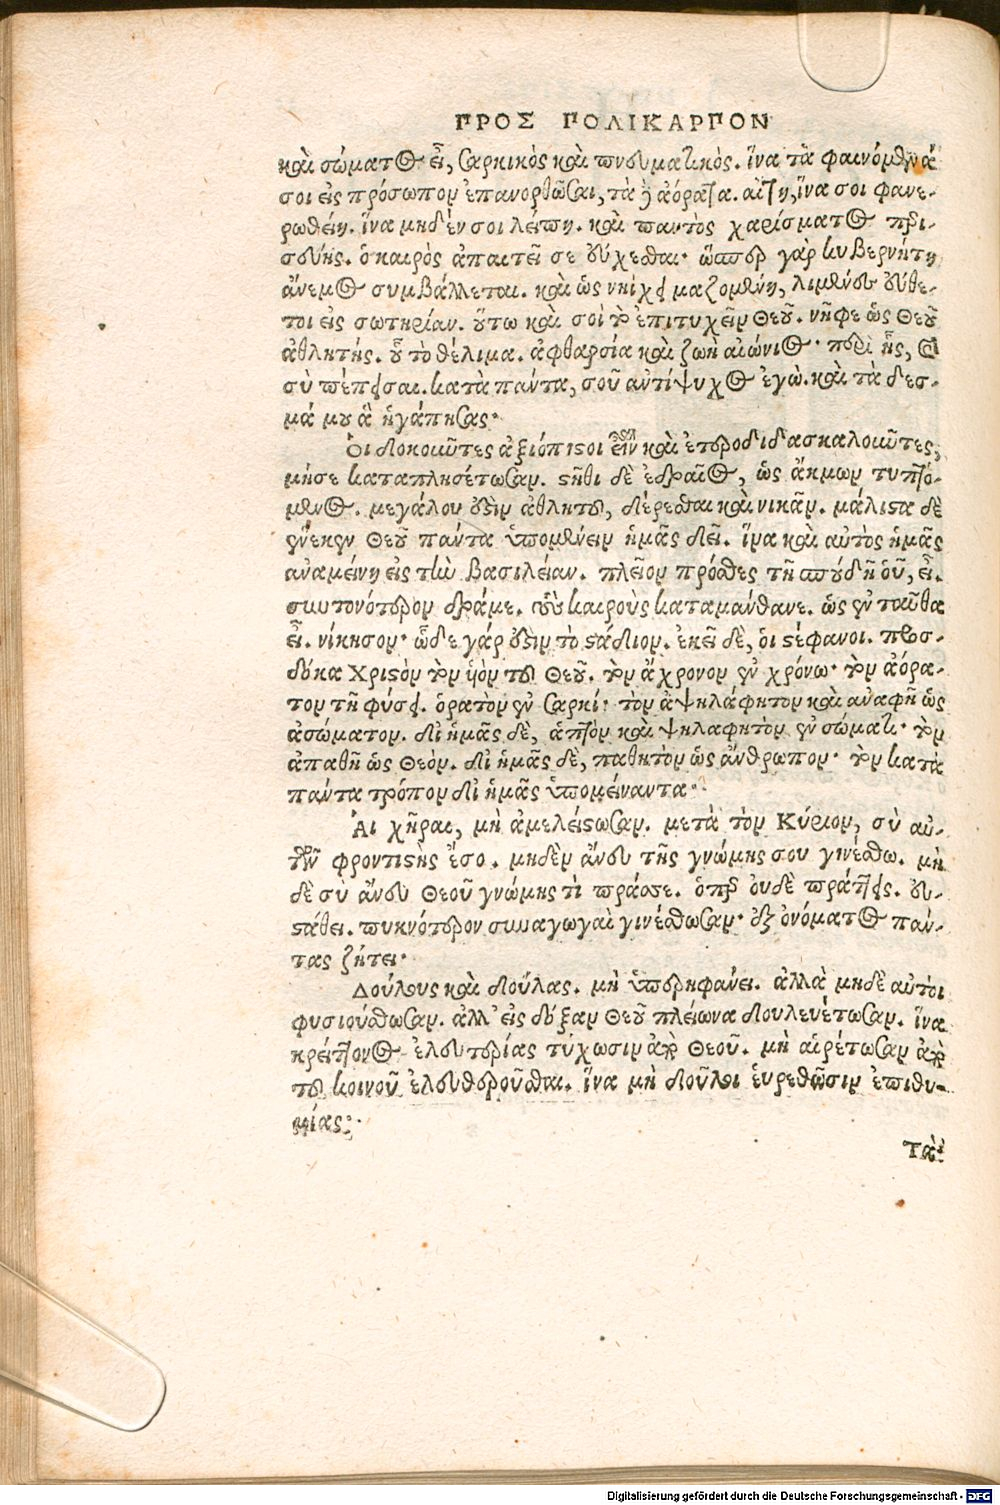 ΠΡΟΣ ΠΟΛΙΚΑΡΠΟΝ
καὶ σώματος εἶ, σαρκικὸς καὶ πνευματικὸς. ἵνα τὰ φαινόμενά
σοι εἰς πρόσωπον ἐπανορθῶσαι, τὰ δὲ ἀόρατα. αἴτη, ἵνα σοι φανε-
ρωθείη. ἵνα μηδέν σοι λείπη. καὶ παντὸς χαρίσματος περι-
σεύης. ὁ καιρὸς ἀπαιτεῖ σε εὔχεσθαι. ὥσπερ γὰρ κυβερνήτη
ἄνεμος συμβάλλεται. καὶ ὡς νηὶ χειμαζομένη, λιμένου εὔθε-
τοι εἰς σωτηρίαν. οὕτω καὶ σοὶ τὸ ἐπιτυχεῖν Θεοῦ. νῆφε ὡς Θεοῦ
ἀθλητής. οὗ τὸ θέλιμα. ἀφθαρσία καὶ ζωὴ αἰώνιος. περὶ ἧς, καὶ
σὺ πέπεισαι. κατὰ πάντα, σοῦ αντίψυχος ἐγὼ. καὶ τὰ δεσ-
μά μου ἃ ἠγάπησας.
Ὁι δοκοιῦτες ἀξιόπιστοι εἶναι καὶ ἑτεροδιδασκαλοιῦτες,
μήσε καταπλησέτωσαν. στῆθι δὲ ἑδραῖος, ὡς ἄκμων τυπτό-
μενος. μεγάλου ἐστὶν ἀθλητοῦ, δέρεσθαι καὶ νικᾶν. μάλιστα δὲ
ἕνεκεν Θεοῦ πάντα ὑπομένειν ἡμᾶς δεῖ. ἵνα καὶ αὐτὸς ἡμᾶς
αναμείνη εἰς τὴν βασιλείαν. πλεῖον πρόσθες τῆ σπουδῆ οὗ, εἶ.
συντονότερον δράμε. τοὺς καιροὺς καταμάνθανε. ὡς ἐνταῦθα
εἶ. νίκησον. ὧδε γάρ ἐστιν τὸ στάδιον. ἐκεῖ δὲ, ὁι στέφανοι. προσ-
δόκα Χριστὸν τὸν ὑιὸν τοῦ Θεοῦ. τὸν ἄχρονον ἐν χρόνω. τὸν ἀόρα-
τον τῆ φύσει. ὁρατὸν ἐν σαρκί. τὸν ἀψηλάφητον καὶ αναφῆ ὡς
ἀσώματον. δι ἡμᾶς δὲ, ἁπτὸν καὶ ψηλαφητὸν ἐν σώματι. τὸν
ἀπαθῆ ὡς Θεὸν. δι ἡμᾶς δὲ, παθητὸν ὡς ἄνθρωπον. τὸν κατὰ
πάντα τρόπον δι ἡμᾶς ὑπομείναντα.
Ἁι χῆραι, μὴ ἀμελείστωσαν. μετὰ τὸν Κύριον, σὺ αὐ-
τῶν φροντιστὴς ἔσο. μηδὲν ἄνευ τῆς γνώμης σου γινέσθω. μη
δὲ σὺ ἄνευ Θεοῦ γνώμης τὶ πράσσε. ὅπερ ουδὲ πράττεις. ευ-
στάθει. πυκνότερον συναγωγαὶ γινέσθωσαν. ἐξ ὀνόματος πάν-
τας ζήτει.
Δούλους καὶ δούλας. μὴ ὑπερηφάνει. ἀλλὰ μηδὲ αὐτὸι
φυσιούσθωσαν. ἀλλ' εἰς δόξαν Θεοῦ πλείωνα δουλευέτωσαν. ἵνα
κρείττονος ἐλευτερίας τύχωσιν ἀπὸ Θεοῦ. μὴ αἱρέτωσαν ἀπὸ
τοῦ κοινοῦ ἐλευθεροῦσθαι. ἵνα μὴ δοῦλοι ἑυρεθῶσιν ἐπιθυ-
μίας.
Τὰς
Digitalisierung gefördert durch die Deutsche Forschungsgemeinschaft - DFG